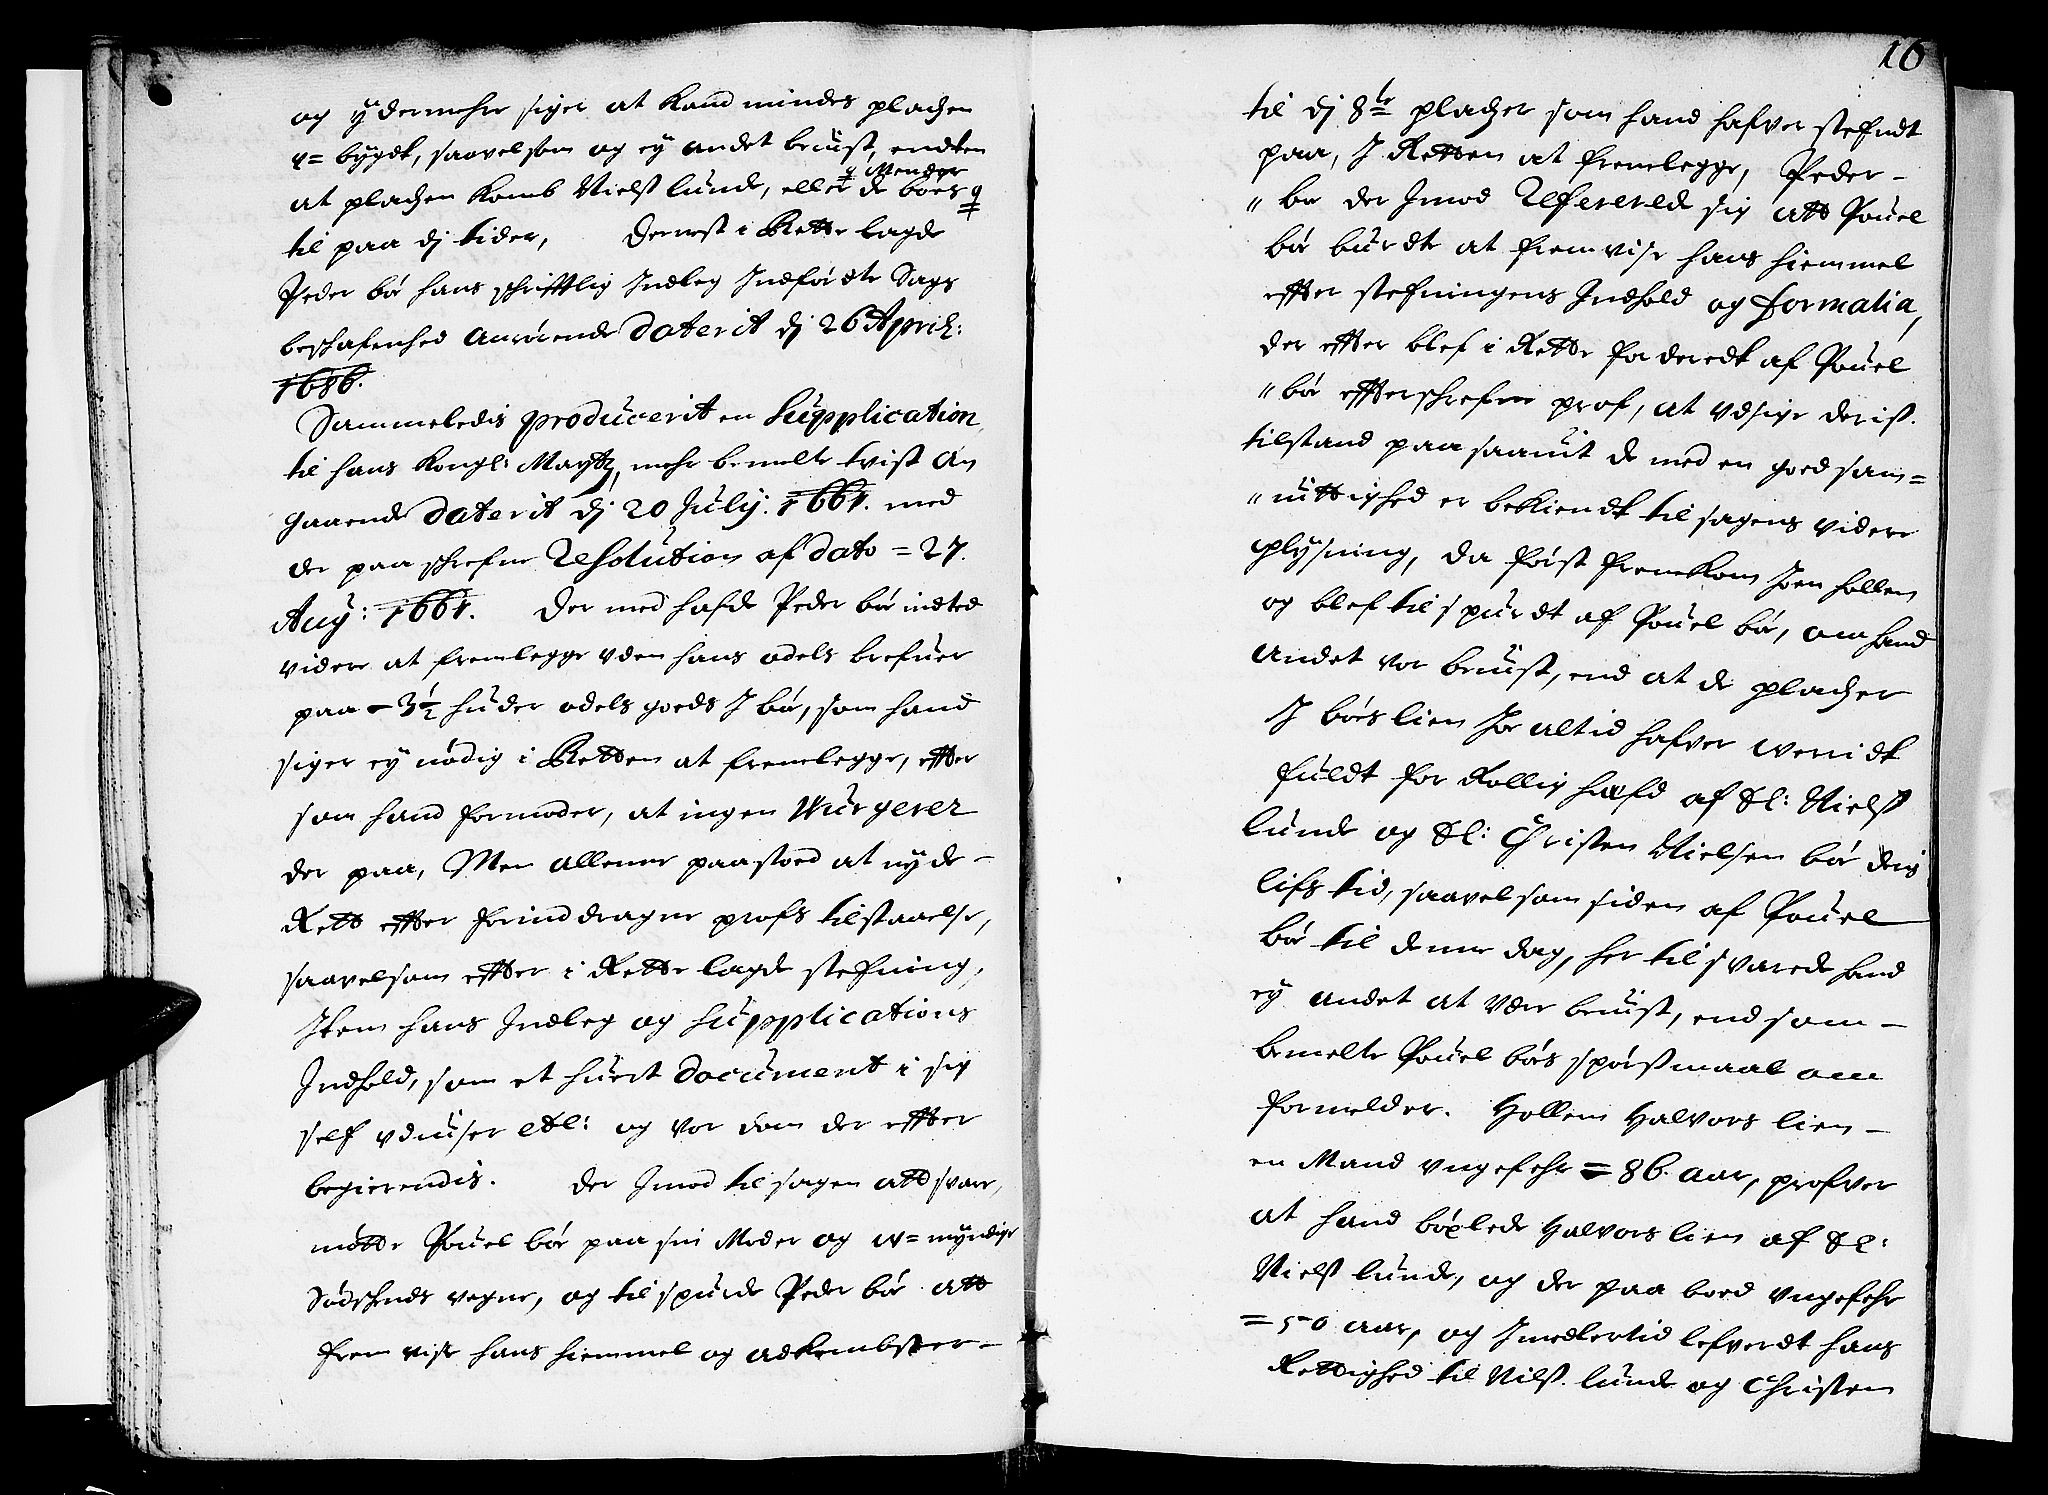 og ÿdermehre siger at kand mindes pladzen
v= bÿgdt, saavelsom og eÿ andet beuist, endten
at pladzen komb Nielsß lunde, eller de boes q
q Mender
til paa dj tider, Dernest i Rette lagde
Peder bør hans schrifftlig Indleg Indførdte Sags
beschafenhed anrørende daterit dj 26 April:
1686.
Sammeledis producerit en Supplication
til hans kongl: Maytz, mehr bemelte tvist an
gaaende daterit dj 20 Julÿ: 1661. med
der paaschrefne Resolution af dato = 27.
Aug: 1661. Der med hafde Peder bør indted
videre at fremlegge uden hans odels brefuer
paa - 3½ huder odels goeds J bør, som hand
siger eÿ nødig i Retten at fremlegge, effter
som hand formoder, at ingen Murgerer
der paa, Men allenne paastoed at nÿde -
Rett effter forinddragne profs tilstaaelse,
saavelsom effter i Rette lagde stefning,
Item hans Indleg og Supplications
Indhold, som et huert document i sig
self uduiser etc: og var dom der effter
begierendis. Der Jmod til sagen att svare,
møtte Pouel bør paa sin Moder og w= mÿndige
Sødschends vegne, og tilspurde Peder bør att
frem vise hans hiemmel og adkombster -
16
til dj 8te pladzer som hand hafver stefndt
paa, J Retten at fremlegge, Peder -
" bør der Jmod Refererede sig att Pouel
bør burdte at fremvise hans hiemmel
effter stefningens Indhold og formalia,
der effter blef i Rette foderedt af Pouel
" bør effterschrefne prof, at udsige deris
tilstand paa saauit de med en goed sam=
" uittighed er bekiendt til sagens videre
oplÿsning, da først fremkom Joen hollen
og blef tilspurdt af Pouel bør, om hand
andet var beuist, end at de pladzer
J børs lien Jo altid hafver werridt
fuldt for Rollig hæfd af Sl: Nielsß
lunde og Sl: Christen Nielsen bør deris
lifs tid, saavelsom siden af Pouel
bør til denne dag, her til svarede hand
eÿ andet at vere beuist, end som -
bemelte Pouel børs spørsmaal om
formelder. Hollem Halvors lien -
en Mand ungefehr = 86. aar, profver
at hand bøxlede Halvors lien af Sl:
Nielsß lunde, og der paa boed ungefehr
= 50 aar, og Jmedlertid lefverdt hans
Rettighed til Nilsß lunde og Christen